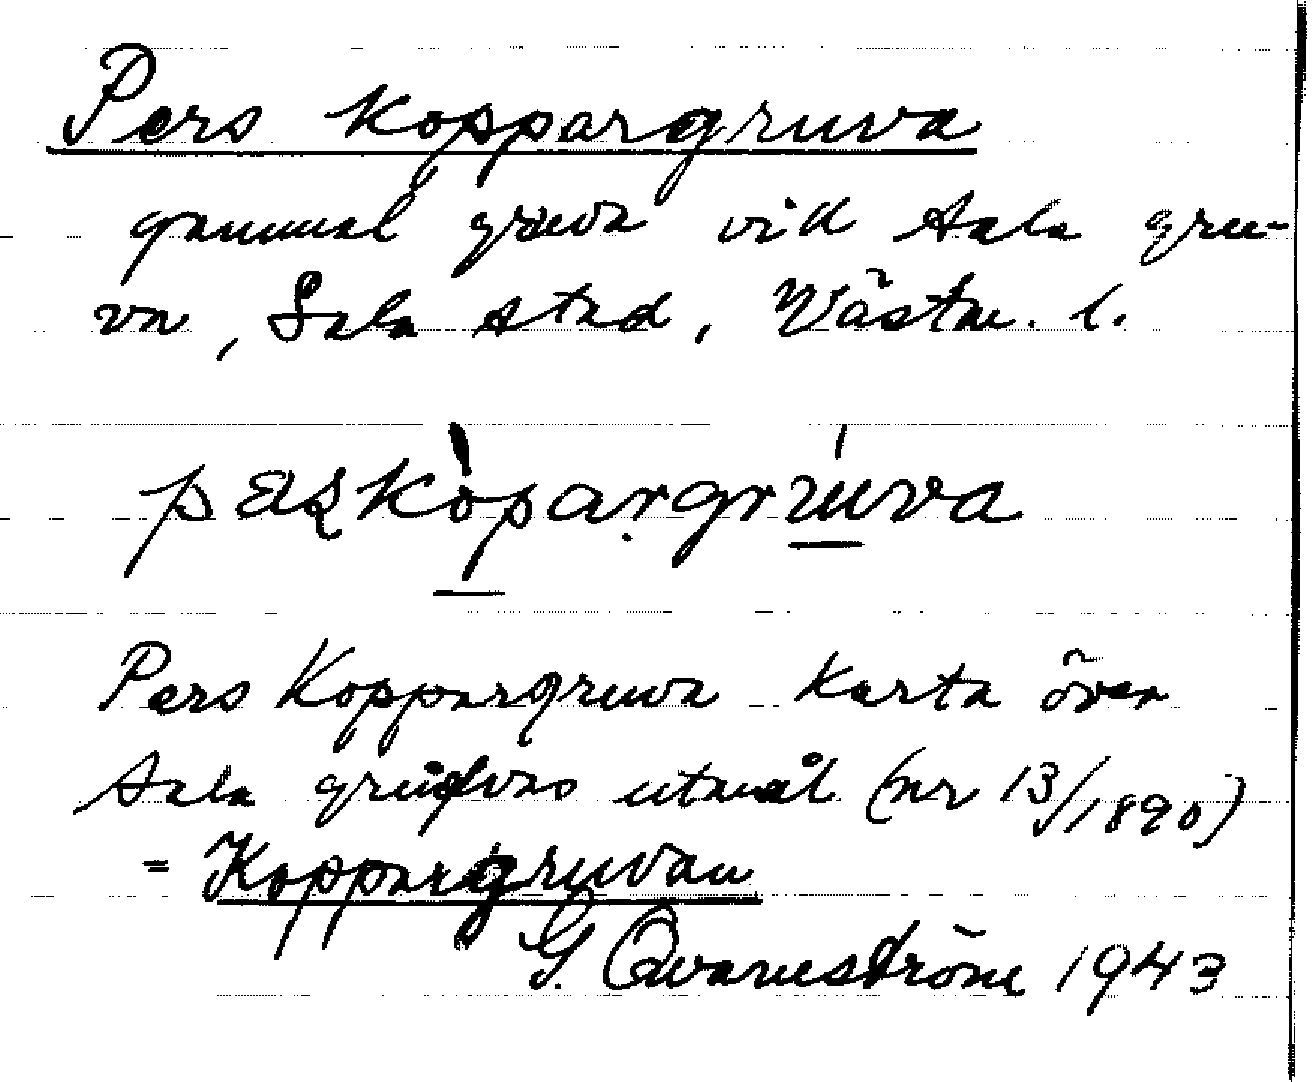 Pers koppargruva
gammal gruva vid Sala gru-
va, Sala stad, Västm. l.
pæʂkòpargrúva
Pers Koppargruva Karta över
Sala grufvas utmål (nr 13/1890)
= Koppargruvan
G. Qvarneström 1943